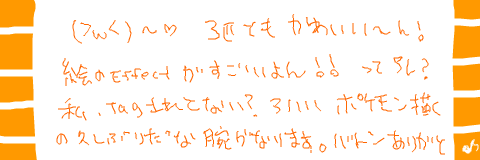 (>ω<)～♡ 3匹ともかわいい～ん!
絵のEffectがすごいよん!! ってアレ?
私、Tagされてない? ういい ポケモン描く
の久しぶりだな 腕がなります。バトンありがと♪